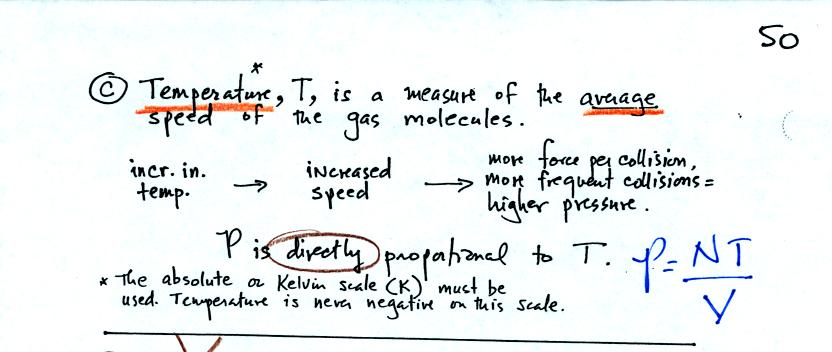 50
*
Ⓒ Temperature, T, is a measure of the average
speed of the gas molecules.
incr. in.
temp. → increased
speed → more force per collision,
more frequent collisions =
higher pressure.
P is directly proportional to T.
P = NT
V
* The absolute or Kelvin scale (K) must be
used. Temperature is never negative on this scale.